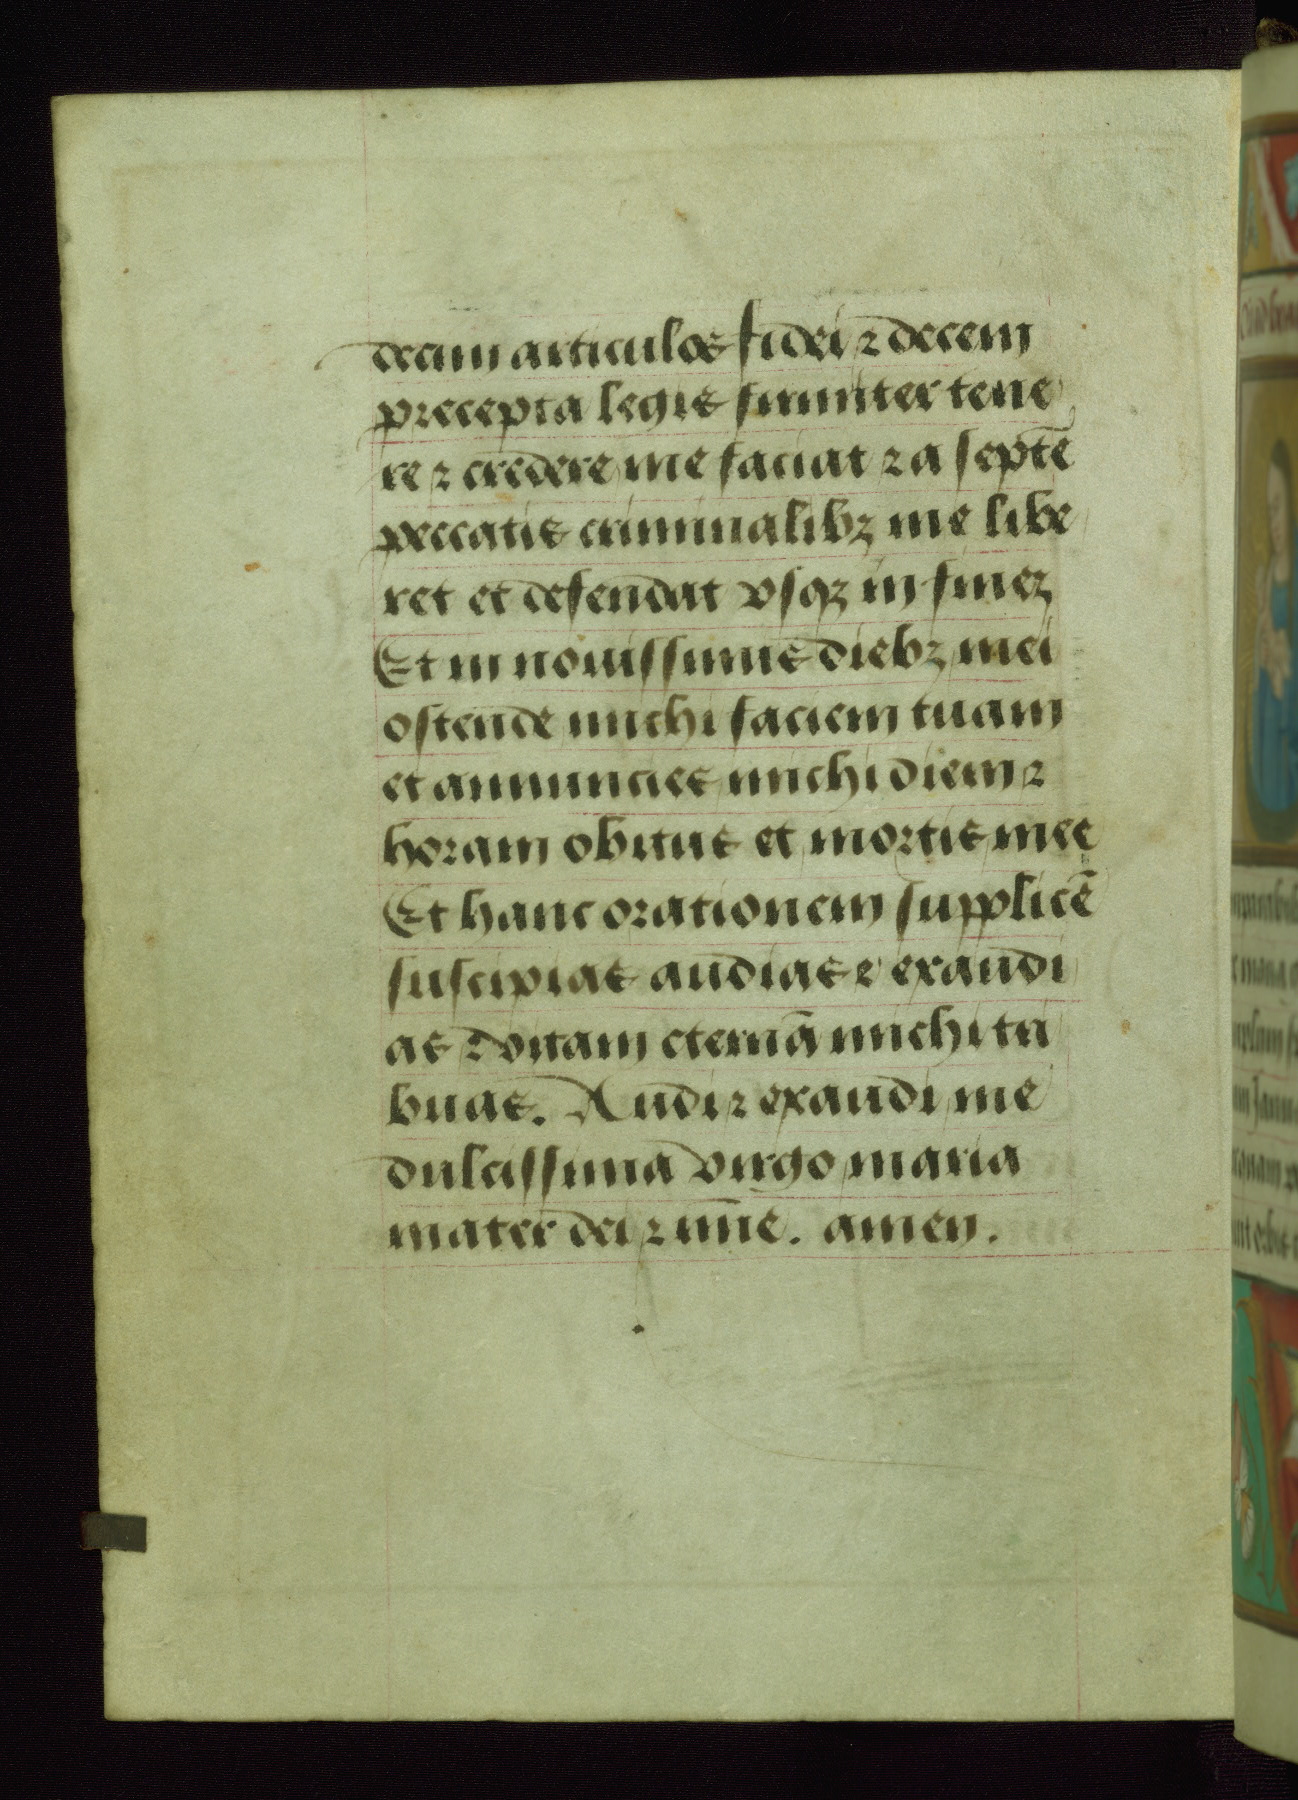 decim articulos fidei ⁊ decem
precepta legis firmiter tene
re ⁊ credere me faciat ⁊ a septē
peccatis criminalibꝫ me libe
ret et defendat vsqꝫ in fineꝫ
Et in nouissimis diebꝫ mei
ostende michi faciem tuam
et annuncies michi diem ⁊
horam obitus et mortis mee
Et hanc orationem supplicē
suscipias audias ⁊ exaudi
as ⁊ vitam eternā michi tri
buas. Audi ⁊ exaudi me
dulcissima virgo maria
mater dei ⁊ mīe. amen.